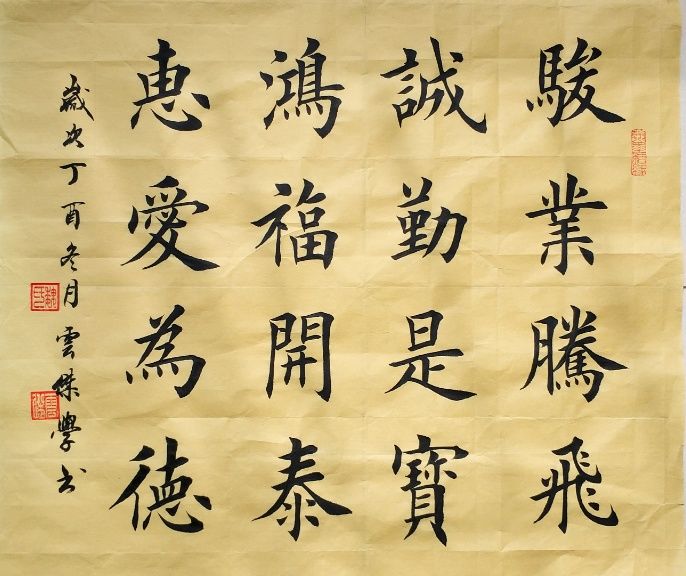 駿業騰飛
誠勤是寶
鴻福開泰
恵愛為徳
歲次丁酉冬月雲傑學書